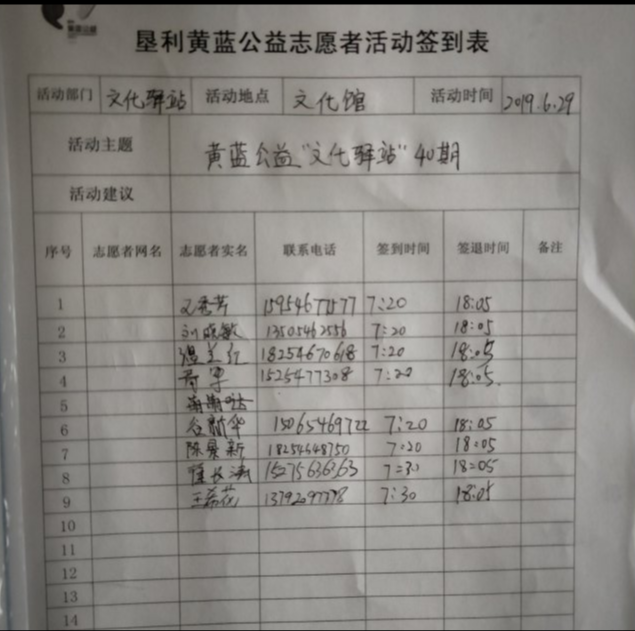 垦利黄蓝公益志愿者活动签到表
活动部门 文化驿站 活动地点 文化馆 活动时间 2019.6.29
活动主题 黄蓝公益"文化驿站"40期
活动建议
序号 志愿者网名 志愿者实名 联系电话 签到时间 签退时间 备注
1 7:20 18:05
2 刘晓敏 13505462556 7:20 18:05
3 温美红 18254670618 7:20 18:05
4 15254777308 7:20 18:05.
5
6 谷新华 15065469722 7:20 18:05
7 陈景新 18254648750 7:20 18:05
8 15275636363 7:30 18:05
9 王希花 7:30 18:05
10
11
12
13
14